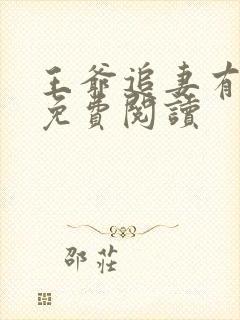 王爺追妻有
免費閱讀
邵莊